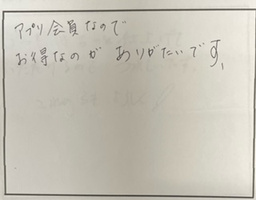 アプリ会員なので
お得なのが ありがたいです、